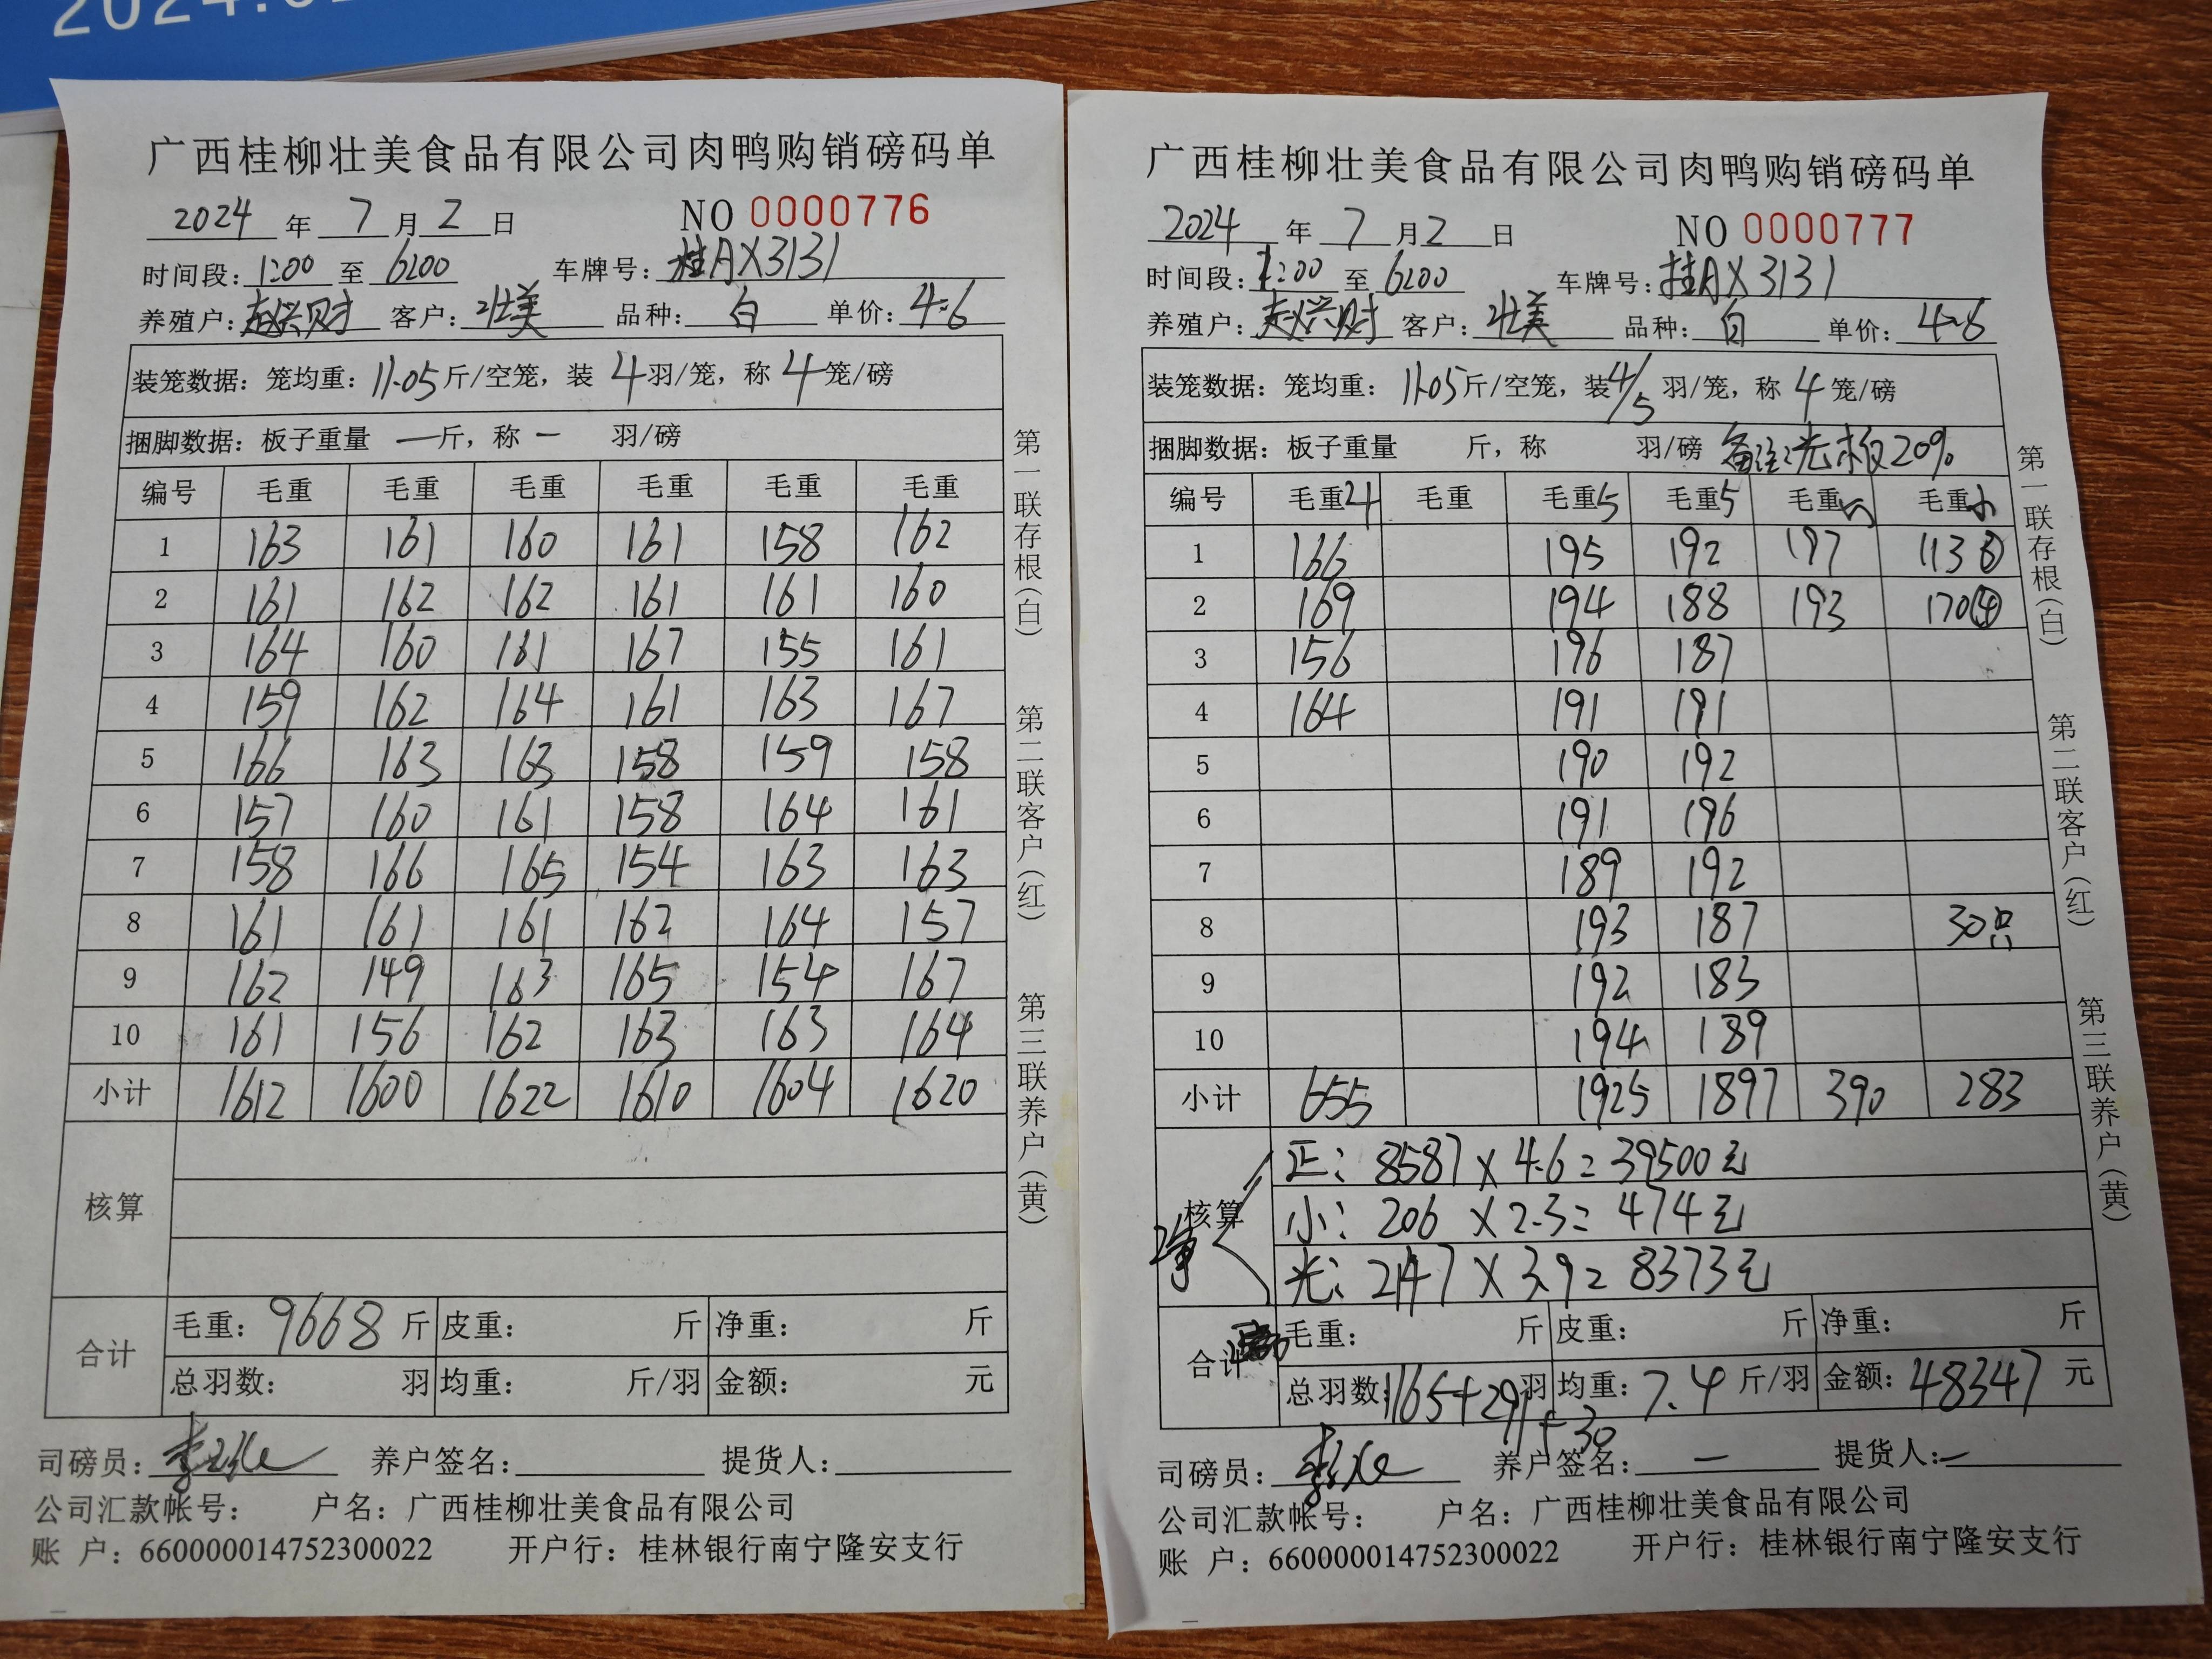 2024.0
广西桂柳壮美食品有限公司肉鸭购销磅码单
2024 年 7 月 2 日 NO 0000776
时间段: 1:00 至 6:00 车牌号: 桂AX3131
养殖户: 赵兴财 客户: 壮美 品种: 白 单价: 4.6
装笼数据: 笼均重: 11.05 斤/空笼, 装 4 羽/笼, 称 4 笼/磅
捆脚数据: 板子重量 — 斤, 称 — 羽/磅
编号 毛重 毛重 毛重 毛重 毛重 毛重
1 163 161 160 161 158 162
2 161 162 162 161 161 160
3 164 160 161 167 155 161
4 159 162 164 161 163 167
5 166 163 163 158 159 158
6 157 160 161 158 164 161
7 158 166 165 154 163 163
8 161 161 161 162 164 157
9 162 149 163 165 154 167
10 161 156 162 163 163 164
小计 1612 1600 1622 1610 1604 1620
核算
合计 毛重: 9668 斤 皮重: 斤 净重: 斤
总羽数: 羽 均重: 斤/羽 金额: 元
司磅员: 养户签名: 提货人:
公司汇款帐号: 户名: 广西桂柳壮美食品有限公司
账 户: 660000014752300022 开户行: 桂林银行南宁隆安支行
第一联存根(白) 第二联客户(红) 第三联养户(黄)
广西桂柳壮美食品有限公司肉鸭购销磅码单
2024 年 7 月 2 日 NO 0000777
时间段: 1:00 至 6:00 车牌号: 桂AX3131
养殖户: 赵兴财 客户: 壮美 品种: 白 单价: 4.6
装笼数据: 笼均重: 11.05 斤/空笼, 装 4/5 羽/笼, 称 4 笼/磅
捆脚数据: 板子重量 斤, 称 羽/磅 备注:光板20%
编号 毛重4 毛重 毛重5 毛重5 毛重5 毛重小
1 166 195 192 197 113③
2 169 194 188 193 170④
3 156 196 187
4 164 191 191
5 190 192
6 191 196
7 189 192
8 193 187 30只
9 192 183
10 194 189
小计 655 1925 1897 390 283
核算 净 正: 8587 X 4.6 = 39500元
小: 206 X 2.3 = 474元
光: 2147 X 3.9 = 8373元
合计 毛重: 斤 皮重: 斤 净重: 斤
总羽数: 1165+291+30 羽 均重: 7.4 斤/羽 金额: 48347 元
司磅员: 养户签名: — 提货人: —
公司汇款帐号: 户名: 广西桂柳壮美食品有限公司
账 户: 660000014752300022 开户行: 桂林银行南宁隆安支行
第一联存根(白) 第二联客户(红) 第三联养户(黄)